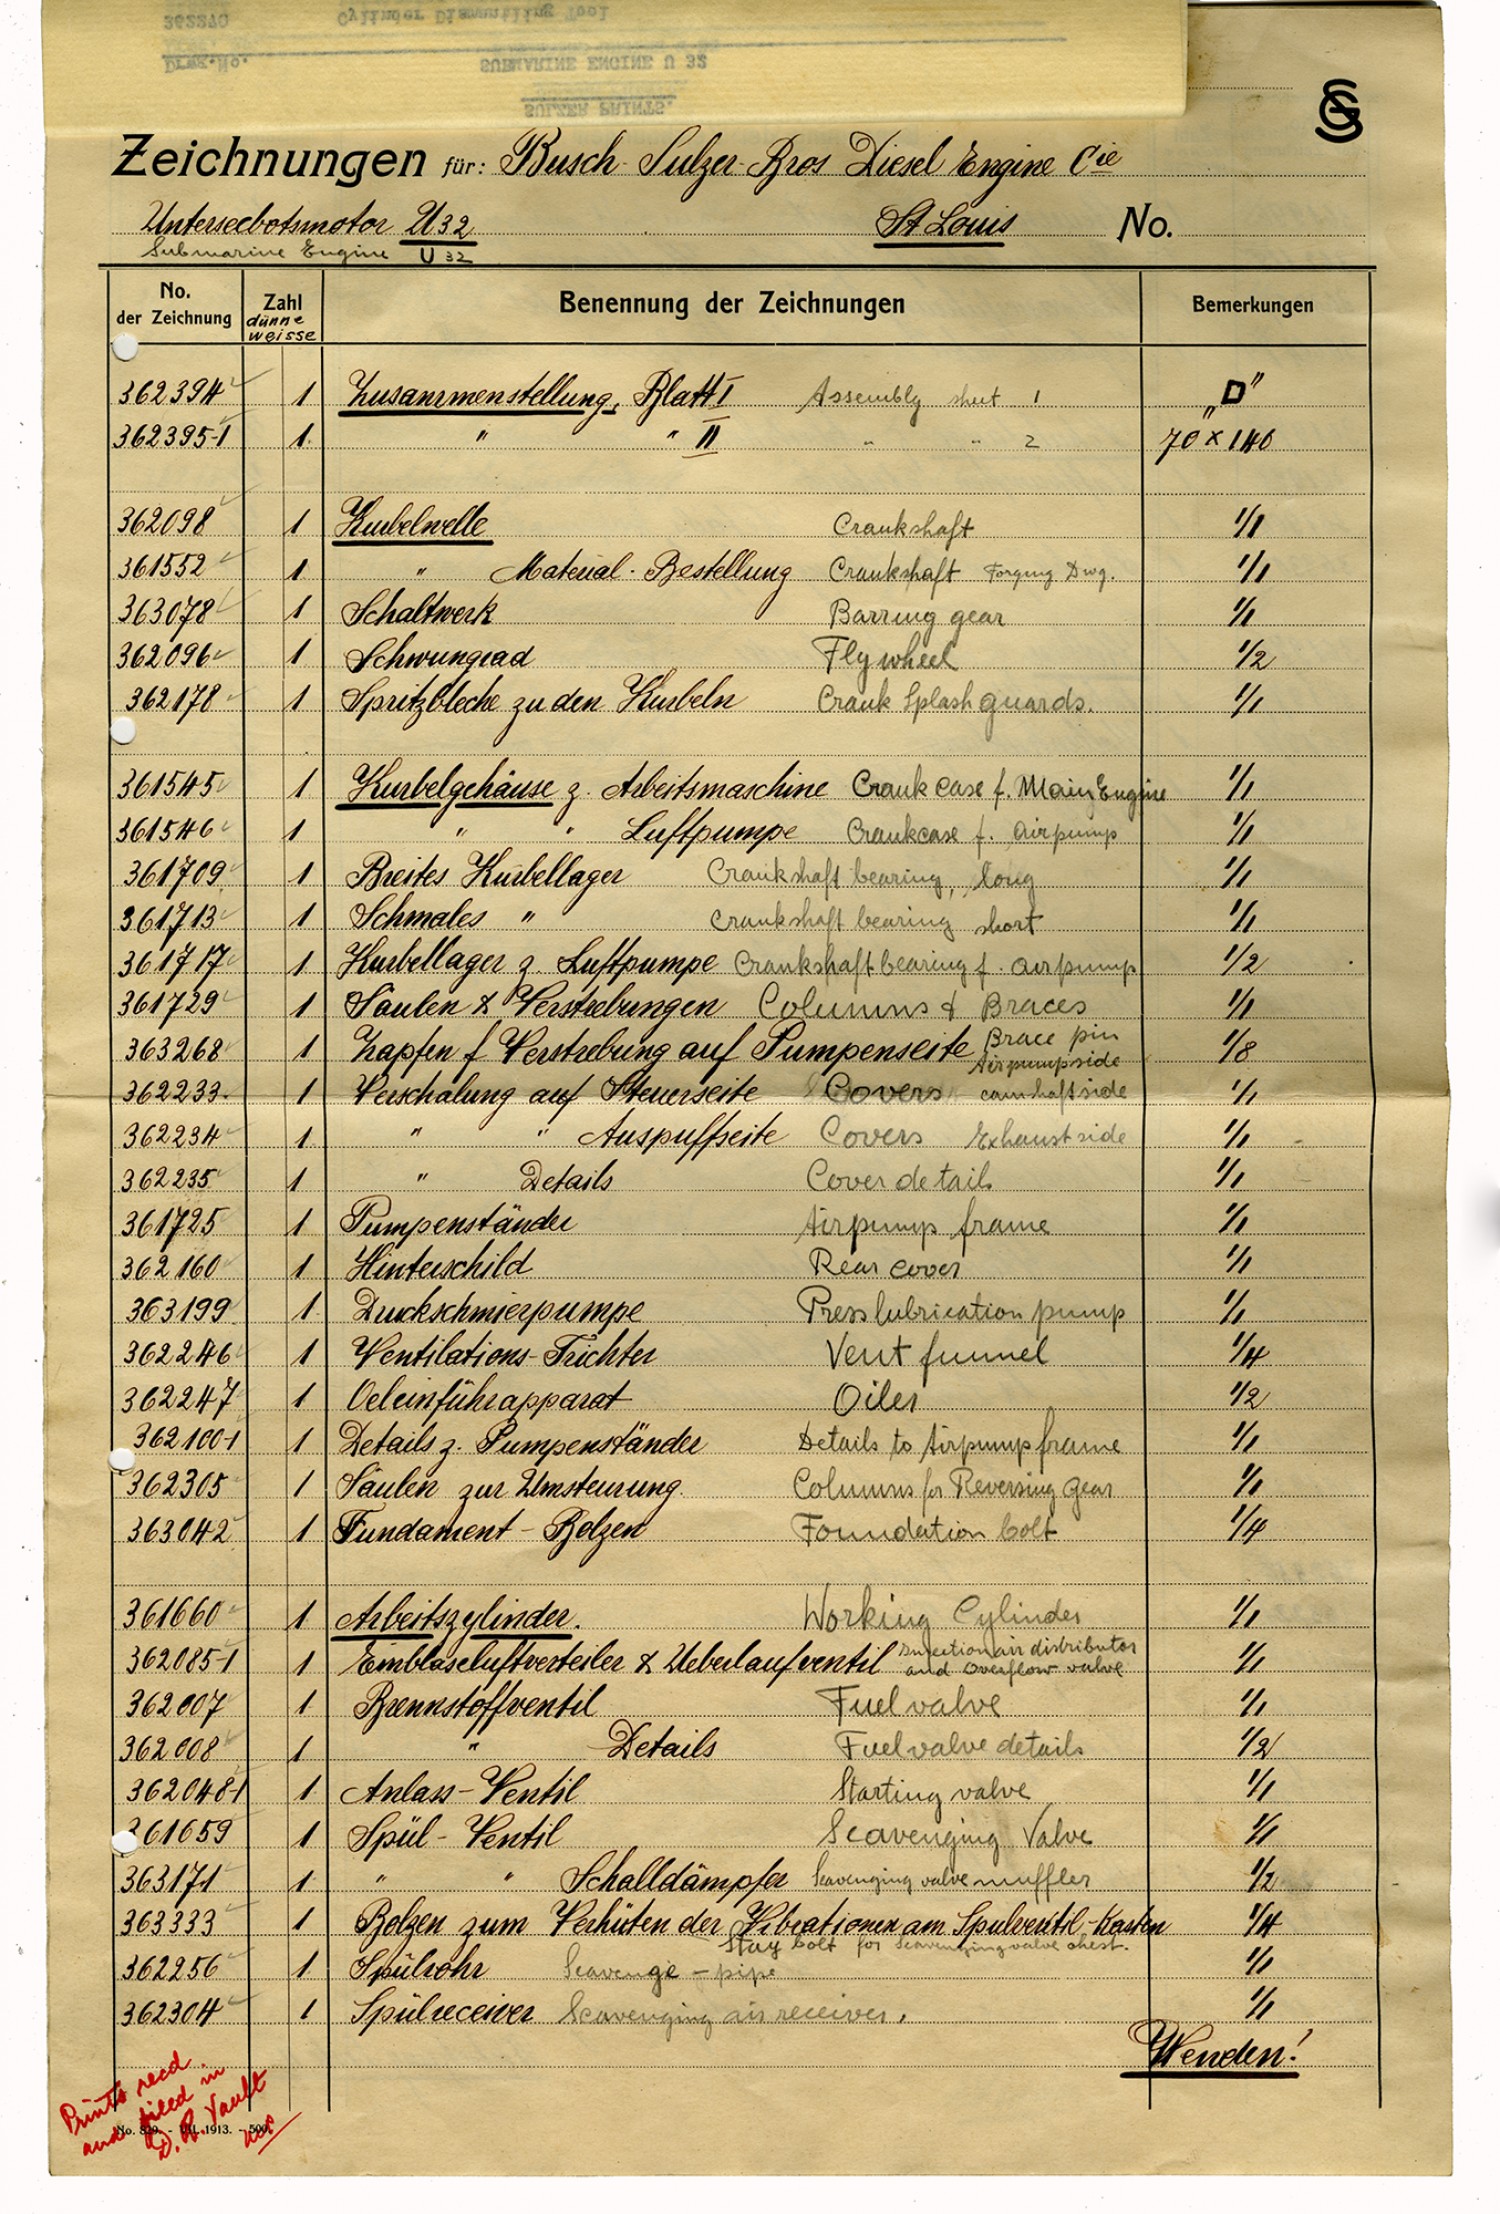 362270 Cylinder Dismantling Tool
Drwg.No. SUBMARINE ENGINE U 32
SULZER PRINTS.
Zeichnungen für: Busch-Sulzer-Bros Diesel Engine Cie
Unterseebotsmotor U32 St Louis No.
Submarine Engine U 32
No. der Zeichnung Zahl dünne weisse Benennung der Zeichnungen Bemerkungen
362394 1 Zusammenstellung, Blatt I Assembly sheet 1 "D"
362395-1 1 " " II " " 2 70 x 140
362098 1 Kurbelwelle Crankshaft 1/1
361552 1 " Material-Bestellung Crankshaft Forging Dwg. 1/1
363078 1 Schaltwerk Barring gear 1/1
362096 1 Schwungrad Flywheel 1/2
362178 1 Spritzbleche zu den Kurbeln Crank Splash guards. 1/1
361545 1 Kurbelgehäuse z. Arbeitsmaschine Crank case f. Main Engine 1/1
361546 1 " " Luftpumpe Crankcase f. airpump 1/1
361709 1 Breites Kurbellager Crankshaft bearing, long 1/1
361713 1 Schmales " Crankshaft bearing short 1/1
361717 1 Kurbellager z. Luftpumpe Crankshaft bearing f. airpump 1/2
361729 1 Säulen & Verstrebungen Columns & Braces 1/1
363268 1 Zapfen f Verstrebung auf Pumpenseite Brace pin Airpumpside 1/8
362233 1 Verschalung auf Steuerseite Covers camshaftside 1/1
362234 1 " " Auspuffseite Covers Exhaust side 1/1
362235 1 " Details Cover details 1/1
361725 1 Pumpenständer Airpump frame 1/1
362160 1 Hinterschild Rear cover 1/1
363199 1 Druckschmierpumpe Press lubrication pump 1/1
362246 1 Ventilations-Trichter Vent funnel 1/4
362247 1 Oeleinführapparat Oiler 1/2
362100-1 1 Details z. Pumpenständer Details to Airpump frame 1/1
362305 1 Säulen zur Umsteurung. Columns for Reversing Gear 1/1
363042 1 Fundament-Bolzen Foundation bolt 1/4
361660 1 Arbeitszylinder. Working Cylinder 1/1
362085-1 1 Einblaseluftverteiler & Ueberlaufventil Injection air distributor and overflow valve 1/1
362007 1 Brennstoffventil Fuel valve 1/1
362008 1 " Details Fuel valve details 1/2
362048-1 1 Anlass-Ventil Starting valve 1/1
361659 1 Spül-Ventil Scavenging Valve 1/1
363171 1 " " Schalldämpfer Scavenging valve muffler 1/2
363333 1 Bolzen zum Verhüten der Vibrationen am Spülventil-Kasten 1/4
Stay bolt for Scavenging valve chest.
362256 1 Spülrohr Scavenge-pipe 1/1
362304 1 Spülreceiver Scavenging air receiver. 1/1
Wenden!
Prints recd
and filed in
D. R. Vault
No. 829. - VII. 1913. - 500.